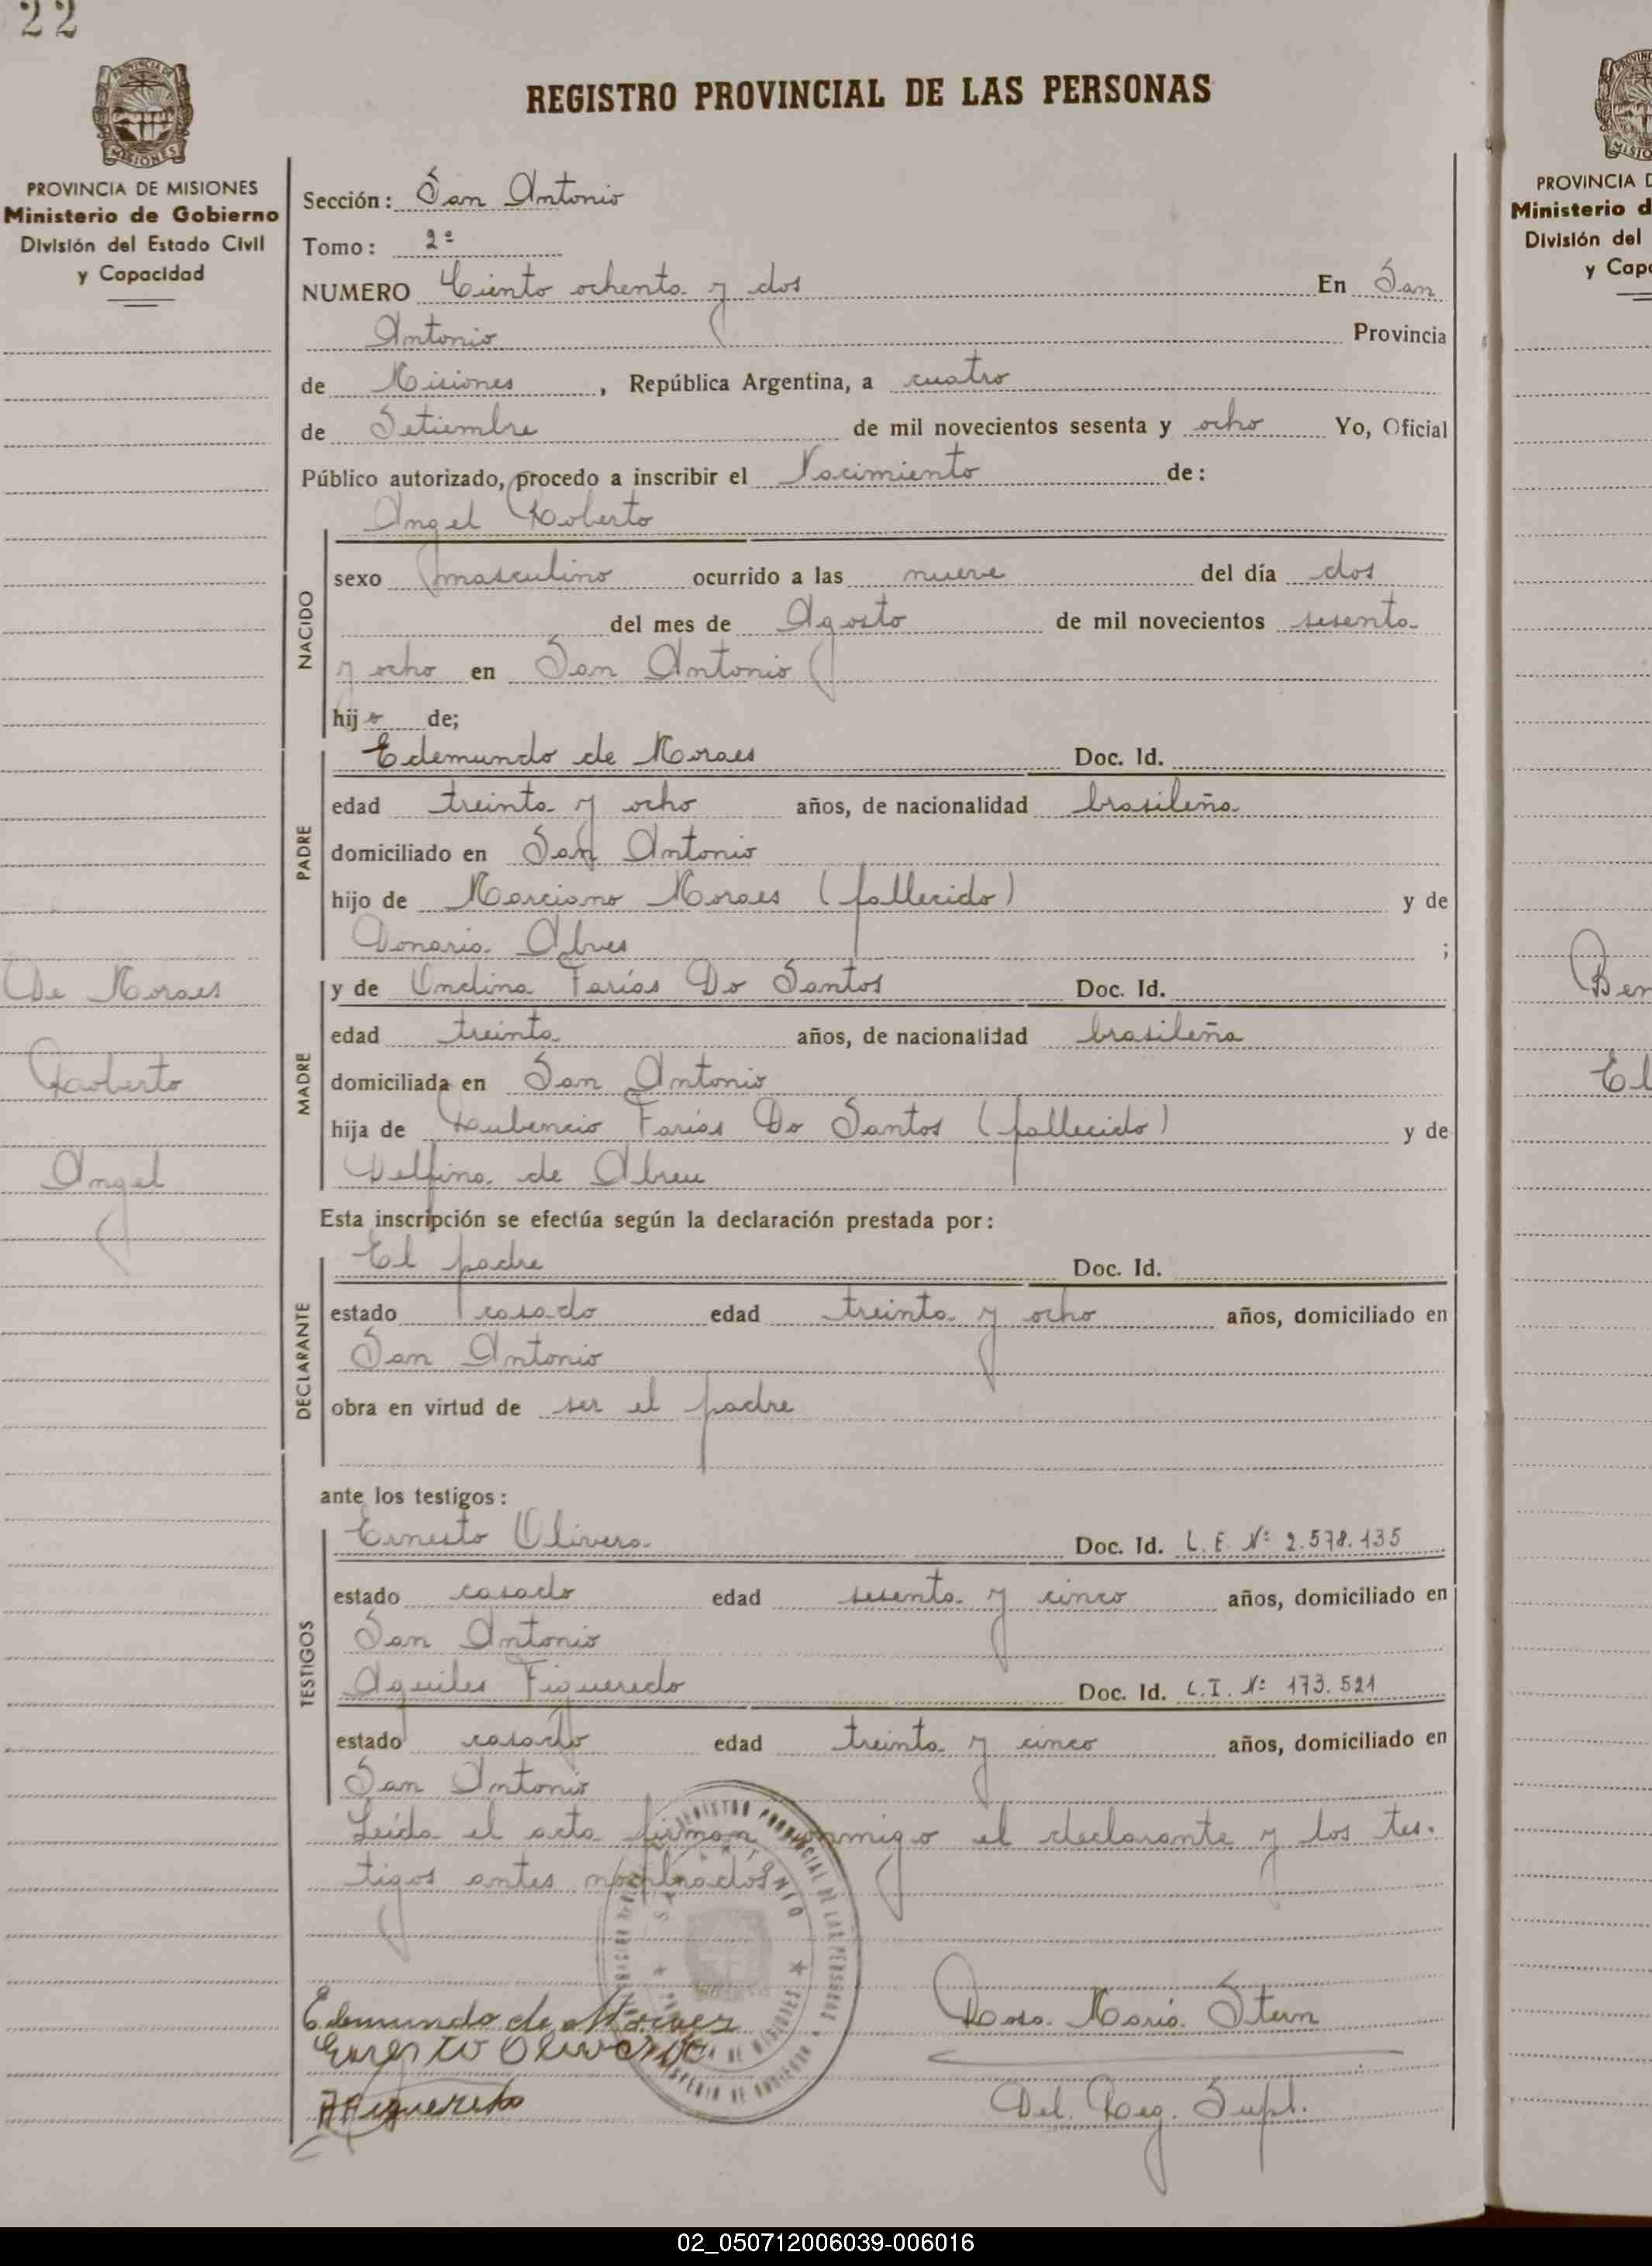 22
REGISTRO PROVINCIAL DE LAS PERSONAS
MISIONES
PROVINCIA DE MISIONES
Ministerio de Gobierno
División del Estado Civil
y Capacidad
Sección: San Antonio
Tomo: 2º
NUMERO Ciento ochenta y dos En San
Antonio Provincia
de Misiones, República Argentina, a cuatro
de Setiembre de mil novecientos sesenta y ocho Yo, Oficial
Público autorizado, procedo a inscribir el Nacimiento de:
Angel Roberto
NACIDO
sexo masculino ocurrido a las nueve del día dos
del mes de Agosto de mil novecientos sesenta
y ocho en San Antonio
hijo de;
PADRE
Edemundo de Moraes Doc. Id.
edad treinta y ocho años, de nacionalidad brasileña
domiciliado en San Antonio
hijo de Marciano Moraes (fallecido) y de
Donaria Alves ;
De Moraes
Roberto
Angel
MADRE
y de Ondina Farías Do Santos Doc. Id.
edad treinta años, de nacionalidad brasileña
domiciliada en San Antonio
hija de Farías Do Santos (fallecido) y de
Delfina de Abreu
Esta inscripción se efectúa según la declaración prestada por:
DECLARANTE
El padre Doc. Id.
estado casado edad treinta y ocho años, domiciliado en
San Antonio
obra en virtud de ser el padre
ante los testigos:
TESTIGOS
Ernesto Olivera Doc. Id. L. E. Nº 2.578.135
estado casado edad sesenta y cinco años, domiciliado en
San Antonio
Aquiles Figueredo Doc. Id. C. I. Nº 173.521
estado casado edad treinta y cinco años, domiciliado en
San Antonio
Leída el acta firman conmigo el declarante y los tes-
tigos antes nombrados
REGISTRO PROVINCIAL DE LAS PERSONAS
SAN ANTONIO
Edmundo de Moraes
Ernesto Olivera
AFigueredo
Rosa María Stern
Del. Reg. Supl.
PROVINCIA D
Ministerio d
División del
y Cap
Ber
El
02_050712006039-006016